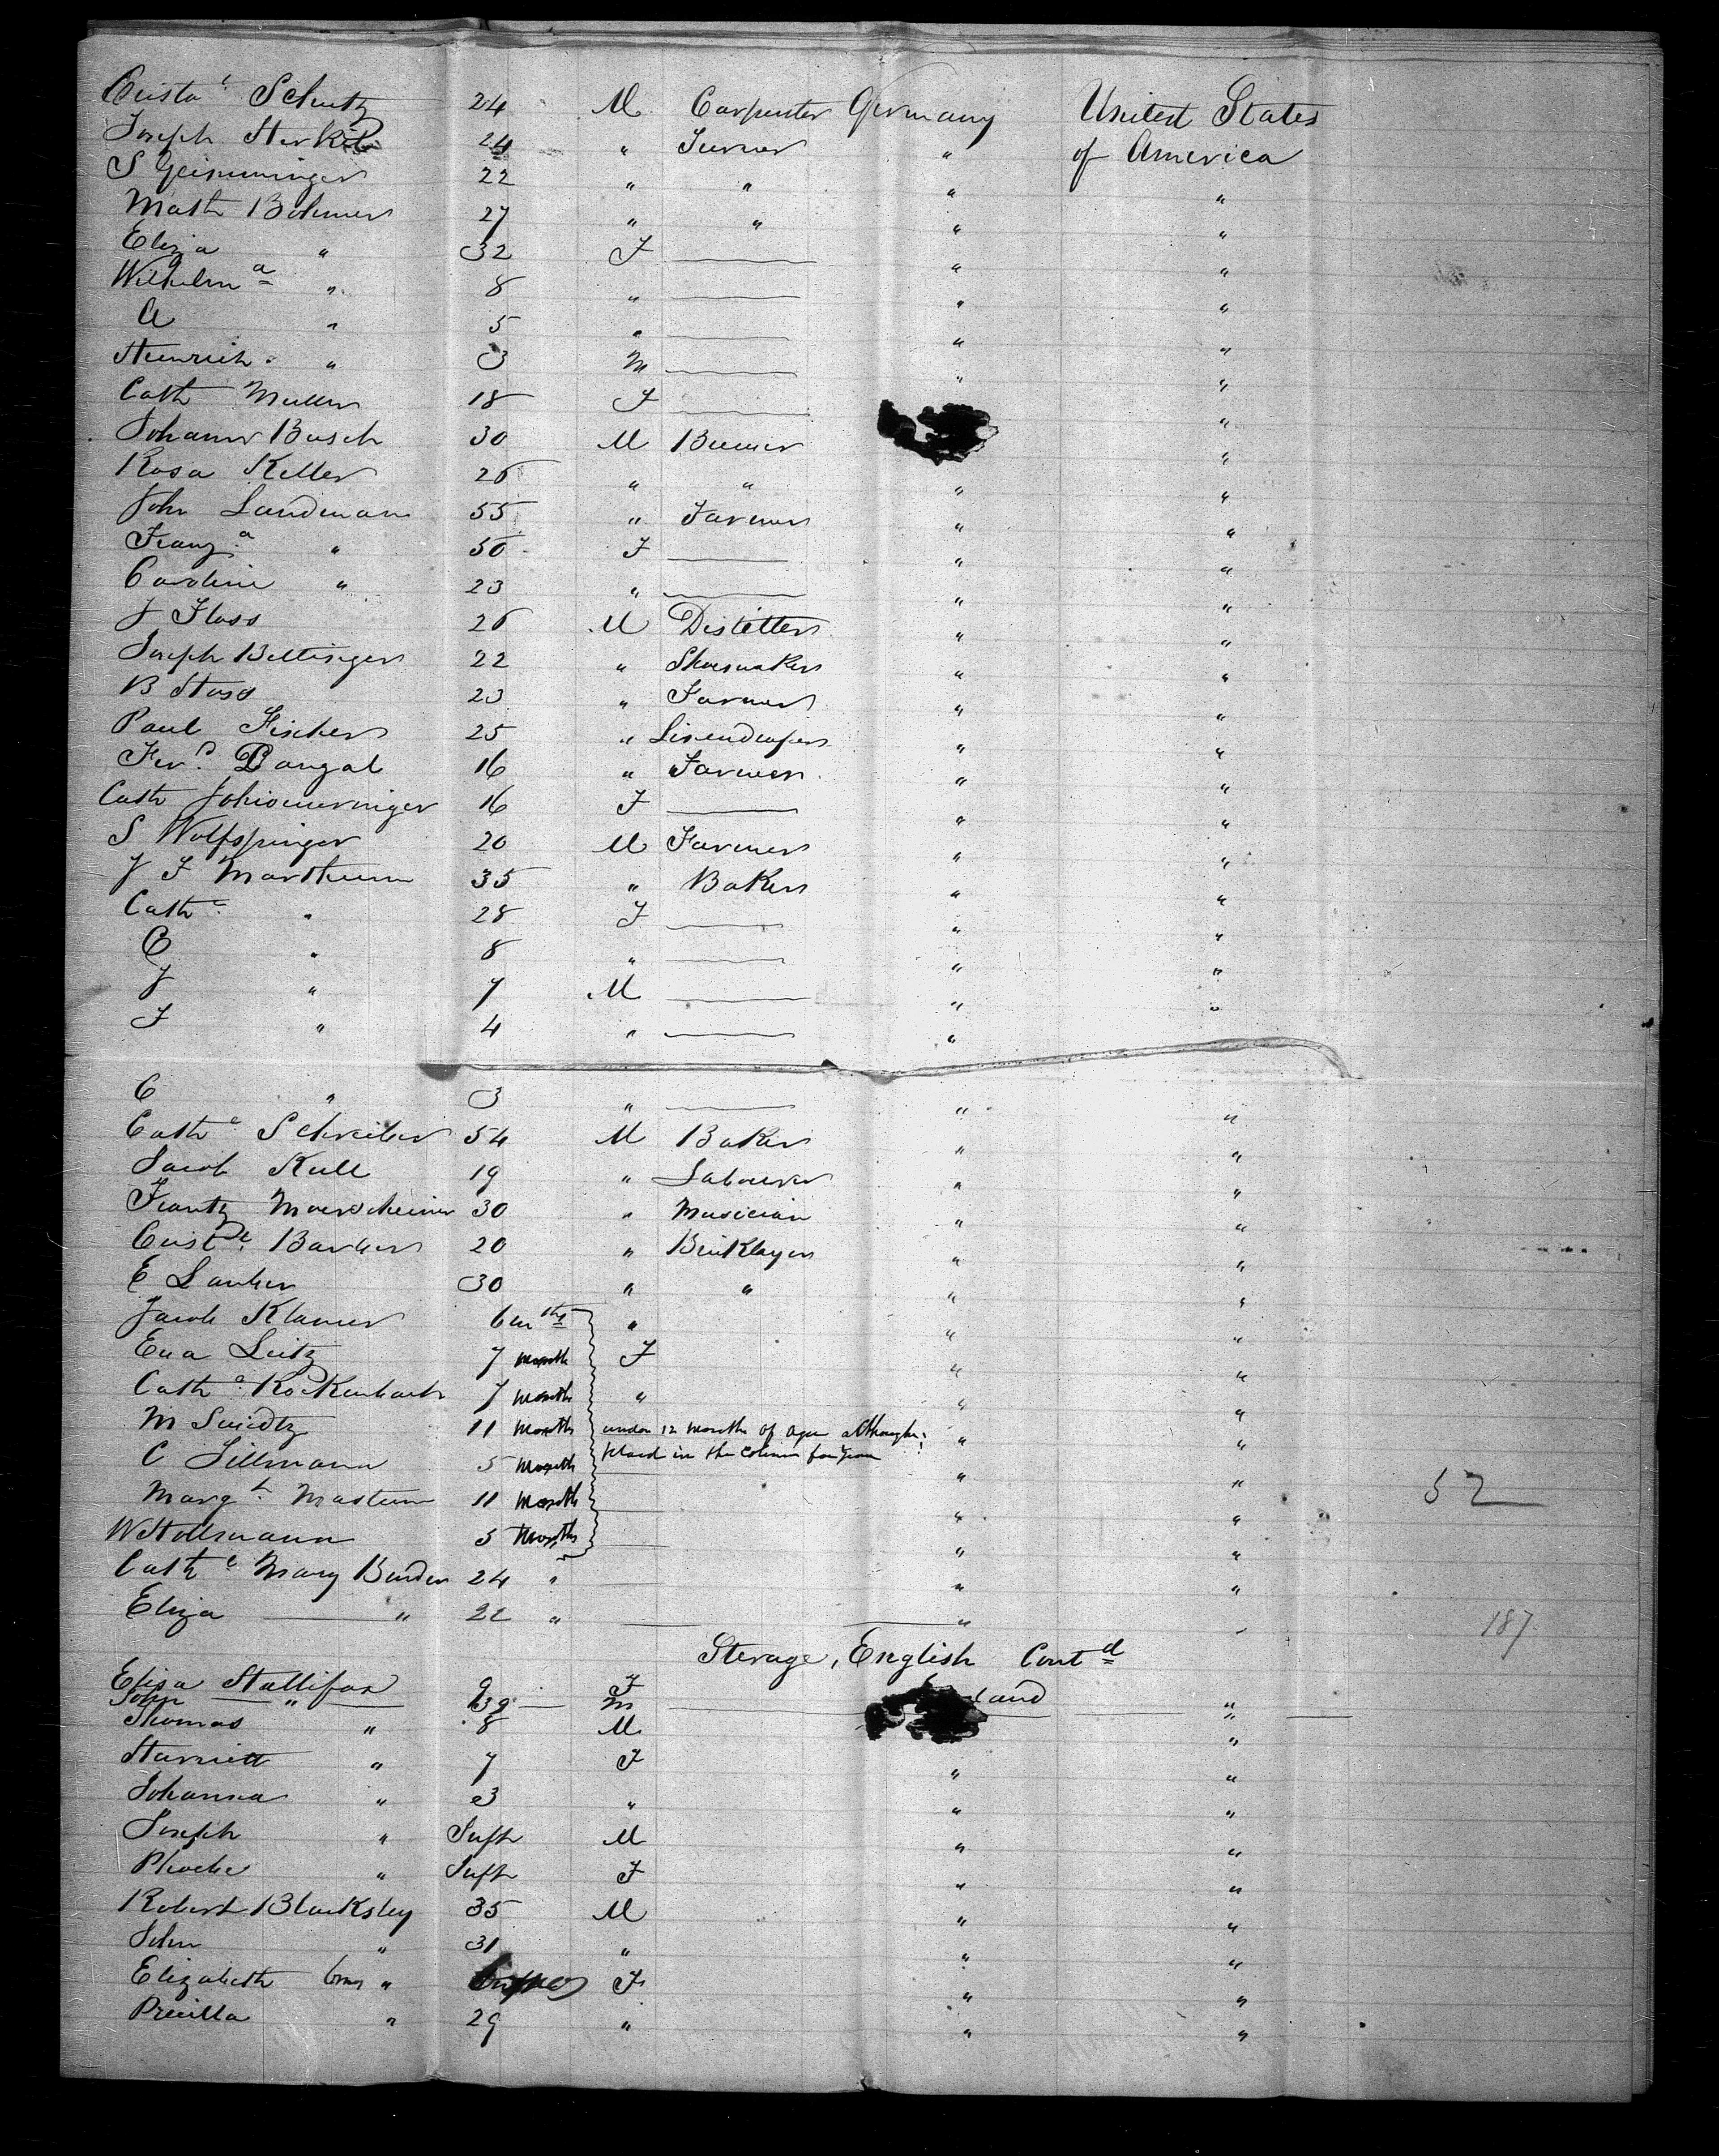 Crista^e Schutz 24 M Carpenter Germany United States
Joseph Sterkel 24 " Turner " of America
S Geisminger 22 " " " "
Math Bohmer 27 " " " "
Eliza " 32 F — " "
Wilhelm^a " 8 " — " "
A " 5 " — " "
Heinrich " 3 M — " "
Cath Muller 18 F — "
Johann Busch 30 M Brewer "
Rosa Keller 26 " " " "
John Landmann 55 " Farmer " "
Franz^a " 50 F — " "
Caroline " 23 " — " "
J Floss 26 M Distiller " "
Joseph Bettinger 22 " Shoemaker " "
B Stoss 23 " Farmer " "
Paul Fischer 25 " Linendraper " "
Fer^d Bangal 16 " Farmer " "
Cath 16 F — " "
S Wolfspringer 20 M Farmer " "
J F Marthum 35 " Baker " "
Cath^e " 28 F — " "
C " 8 " — " "
J " 7 M — " "
F " 4 " — "
C " 3 " — " "
Cath^e Schreiber 54 M Baker " "
Jacob Kull 19 " Labourer " "
Frantz 30 " Musician " "
Crist^e Barber 20 " Bricklayer " "
E Lauher 30 " " " "
Jacob Klamer 6 m^ths " " "
Eva Leitz 7 Month F " "
Cath^e Rockenbach 7 Month " " "
M 11 Months under 12 Months of age although " "
C Tillmann 5 Month placed in the column for Years " "
Marg^t Mastum 11 Month — " " 52
W Stollsmann 5 Months — " "
Cath^e Mary Binder 24 " — " "
Eliza — " 22 " — " " 187
Sterage, English Cont^d
Elisa Stallifox 9 F land "
John — " — 39 — M — "
Thomas " 8 M "
Harriett " 7 F " "
Johanna " 3 " " "
Joseph " Inft M " "
Phoebe " Inft F " "
Robert Blacksley 35 M " "
John " 31 " " "
Elizabeth 6ms " F " "
Precilla " 29 " " "